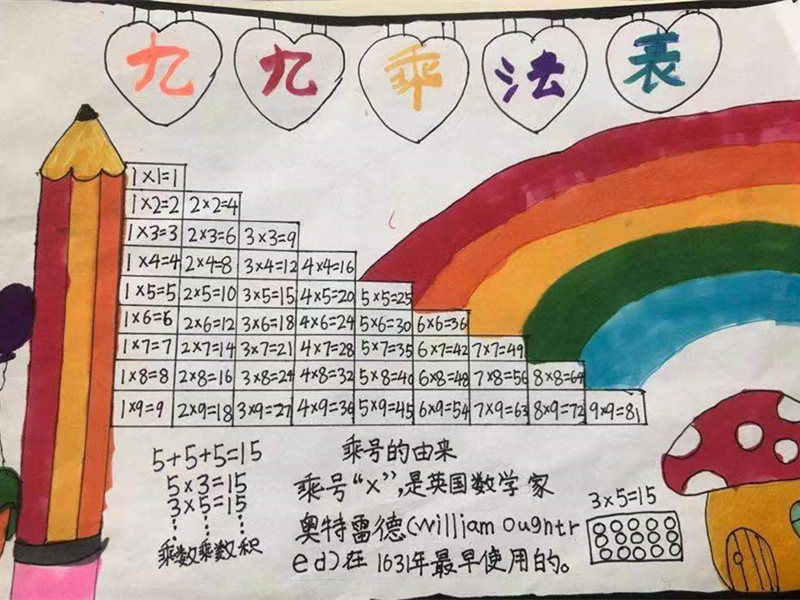 九九乘法表
1×1=1
1×2=2 2×2=4
1×3=3 2×3=6 3×3=9
1×4=4 2×4=8 3×4=12 4×4=16
1×5=5 2×5=10 3×5=15 4×5=20 5×5=25
1×6=6 2×6=12 3×6=18 4×6=24 5×6=30 6×6=36
1×7=7 2×7=14 3×7=21 4×7=28 5×7=35 6×7=42 7×7=49
1×8=8 2×8=16 3×8=24 4×8=32 5×8=40 6×8=48 7×8=56 8×8=64
1×9=9 2×9=18 3×9=27 4×9=36 5×9=45 6×9=54 7×9=63 8×9=72 9×9=81
5+5+5=15
5×3=15
3×5=15
乘数乘数积
乘号的由来
乘号“×”,是英国数学家
奥特雷德(william ougntr
ed)在1631年最早使用的。
3×5=15